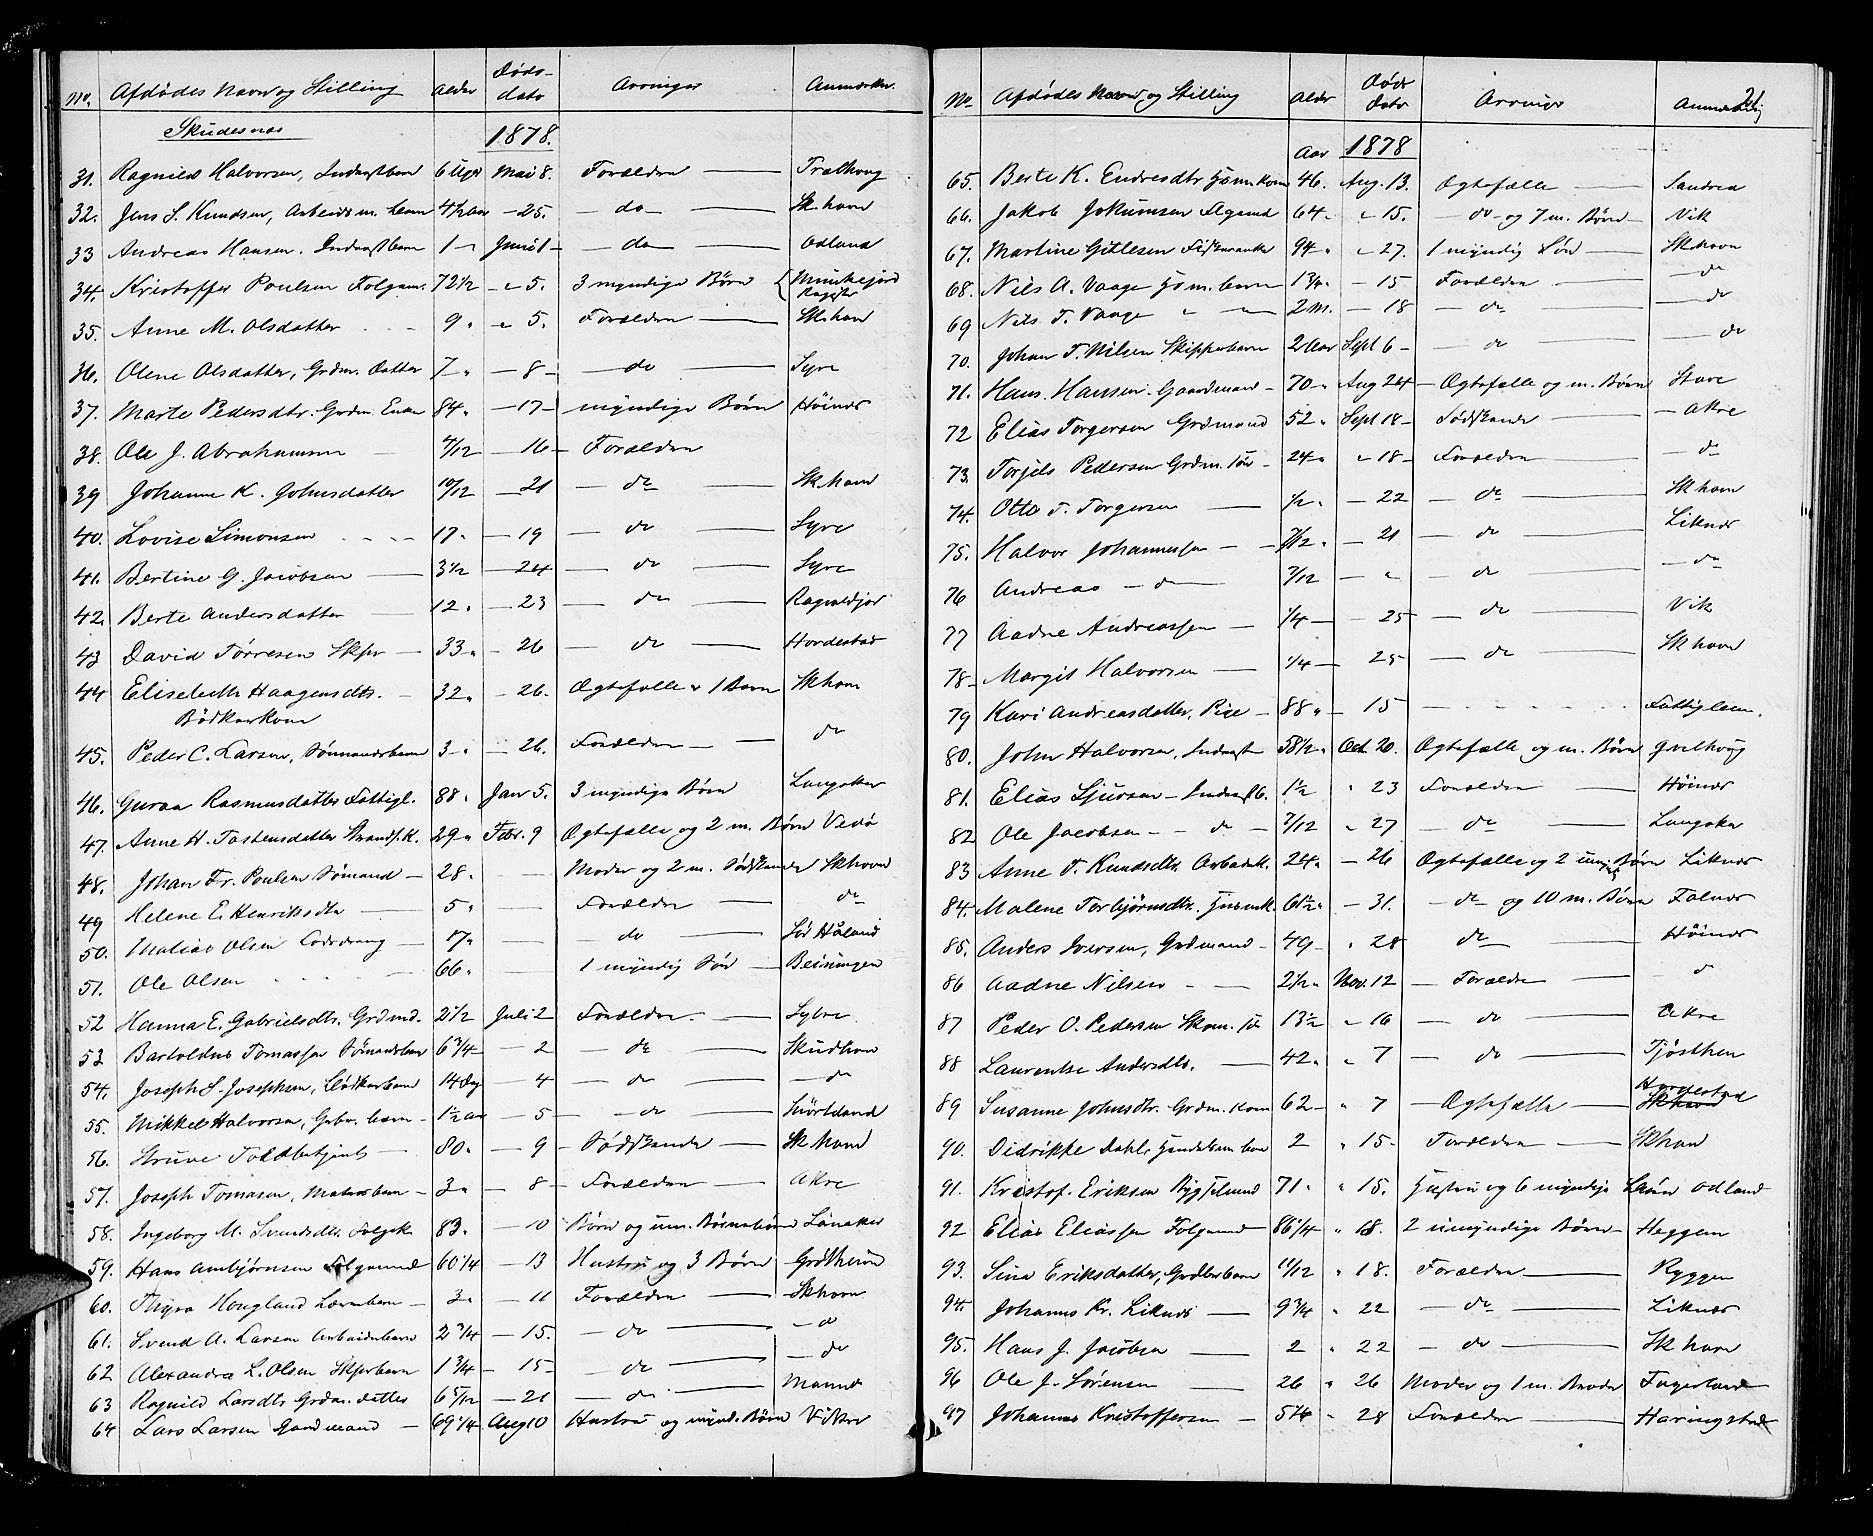 No. Afdødes Navn og Stilling Alder Dødsdato Arvinger Anmærkn.
Skudesnæs 1878.
31. Ragnild Halvorsen, Inderstbarn 6 Uger Mai 8. Forældre Trælhoug
32. Jens S. Knudsen, Arbeidsm. barn 4 1/2 Aar - 25. do Sk.havn
33 Andreas Hansen. Inderstbarn 1 - Juni 1 - do Ødland
34. Kristoffer Poulsen Folgem. 72 1/2 - " 5. 3 myndige Børn Munkejord
35. Anne M. Olsdatter 9 " " 5. Forældre Sk.havn
36. Olene Olsdatter, Grdm. Datter 7 " - 8 - do Syre
37. Marte Pedersdtr. Grdm. Enke 84 " - 17 - myndige Børn Høines
38. Ole J. Abrahamsen 4/12 - 16 - Forældre
39 Johanne K. Johnsdatter 10/12 - 21 - do Sk.havn
40. Lovise Simonsen 17 " - 19 - do Syre
41. Bertine G. Jacobsen 3 1/2 - 24 - do Syre
42. Berte Andersdatter 12 " - 23 - do Ragnaldjor
43 David Tørresen Skpr 33 " - 26 - do Hordestad
44 Elisebeth Haagensdtr. 32 " - 26. Ægtefælle & 1 Barn Sk.havn
Bødkerkone
45. Peder C. Larsen, Sømandsbarn 3 " - 26. Forældre do
46. Guroa Rasmusdatter Fattigl. 88 " Jan 5. 3 myndige Børn Langaker
47. Anne H. Tostensdatter Strands.K. 29 " Febr. 9 Ægtefælle og 2 m. Børn Vedø
48. Johan Fr. Poulsen Sømand 28 " Moder og 2 m. Sødskende Skhavn
49 Helene E. Henriksdtr 5 " Forældre do
50. Matias Olsen 17 " do Sød Håland
51. Ole Olsen 66 " 1 myndig Søn Beiningen
52 Hanna E. Gabrielsdtr. Grdmd. 2 1/2 Juli 2 Forældre Sybre
53 Bartoldus Tomassen Sømandsbarn 6 3/4 - 2 do Skudhavn
54. Joseph S. Josephsen, Bødkerbarn 14 Dag - 4 - do - do
55. Mikkel Halvorsen, Gabr. barn 1 1/2 Aar - 5 - do Snørteland
56. Struve Toldbetjent 80 " - 9 - Sødskende Sk.havn
57. Joseph Tomasen, Matrosbarn 3 " - 8 - Forældre Akre
58. Ingeborg M. Svendsdtr. Folgek. 83 " - 10 Børn og um. Børnebørn Lånaker
59. Hans Ambjørnsen Folgemand 60 1/4 - 13 Hustru og 3 Børn Grødheim
60. Thyra Hougland Lærerbarn 3 " - 11 Forældre Skhavn
61. Svend A. Larsen Arbeiderbarn 2 3/4 - 15. - do - do
62 Alexandra L. Olsen Skprbarn 1 3/4 - 15 - do - do
63 Ragnild Larsdtr Grdm. datter 6 5/12 - 21 - do Mannes
64 Lars Larsen Gaardmand 69 1/4 Aug 10 Hustru og mynd. Børn Vikre
No. Afdødes Navn og Stilling Alder Døds Dato Arvinge Anmærkning
21
Aar 1878
65. Berte K. Endresdtr Hsm.kone 46. Aug. 13. Ægtefælle Sandvea
66. Jakob Jokumsen 64 - " 15. - do - og 7 m. Børn Vik
67. Martine Gitlesen Fiskerenke 94 " " 27. 1 myndig Søn Skhavn
68. Nils A. Vaage Hsm. barn 1 3/4 " - 15 Forældre - do
69 Nils T. Vaage " 2 M. - 18 - do - do
70. Johan T. Nilsen Skipperbarn 2 Aar Sept 6 - - do - do
71. Hans Hansen. Gaardmand 70 " Aug 24 - Ægtefælle og m. Børn Stave
72 Elias Torgersen Grdmand 52 " Sept 18 - Sødskende - Akre
73. Torjels Pedersen Grdm. Søn 24 " " 18 - Forældre - do
74. Otto T. Torgersen 1/2 " - 22 - do Sk havn
75. Halvor Johannessen 7/12 " - 21 - do Liknes
76 Andreas - do 7/12 - " - do - do
77 Aadne Andreassen 1/4 - - 25 - do Vik
78. Margit Halvorsen 1/4 - 25 - do Sk havn
79 Kari Andreasdatter. Pige 88 " - 15 Fattiglem.
80. John Halvorsen, Inderst 58 1/2 " Oct 20. Ægtefælle og m. Børn Qvilhoug
81. Elias Sjursen - Inderstb. 1 1/2 " 23 Forældre Høines
82 Ole Jacobsen - - do - 7/12 " 27 - do Langaker
83 Anne T. Knudsdtr. Arbeidsk. 24 " - 26 Ægtefælle og 2 umynd. Børn Liknes
84. Malene Torbjørnsdtr. Husmk. 61 1/2 " - 31. - do og 10 m. Børn Falnes
85. Anders Iversen, Grdmand 49 - " 28 do Høines
86 Aadne Nilsen 2 1/2 " Nov. 12 - Forældre - do
87 Peder O. Pedersen Skom. Søn 13 1/2 " 16 - do Akre
88 Laurentse Andersdtr. 42 " " 7 - do Tjøsthen
89 Susanne Johnsdtr. Grdm. Kone 62 - " 7 - Ægtefælle Hordestad
90. Didrikke Dahl, Handelsm. barn 2 " 15. Forældre Skhavn
91. Kristof. Eriksen Bygselmand 71 " " 15. Hustru og 6 myndige Børn Ødland
92 Elias Eliassen Folgemand 86 1/4 " 18. 2 umyndige Børn Heggem
93. Sina Eriksdatter, Grdbr.barn 11/12 " 18. Forældre Ryggen
94. Johannes Kr. Liknes 9 3/4 " 22 - do Liknes
95. Hans J. Jacobsen 2 " 22 - do Sk havn
96 Ole J. Sørensen 26 " 26 Moder og 1 m. Broder Fugerland
97 Johannes Kristoffersen 5 1/4 " 28 Forældre Haringstad